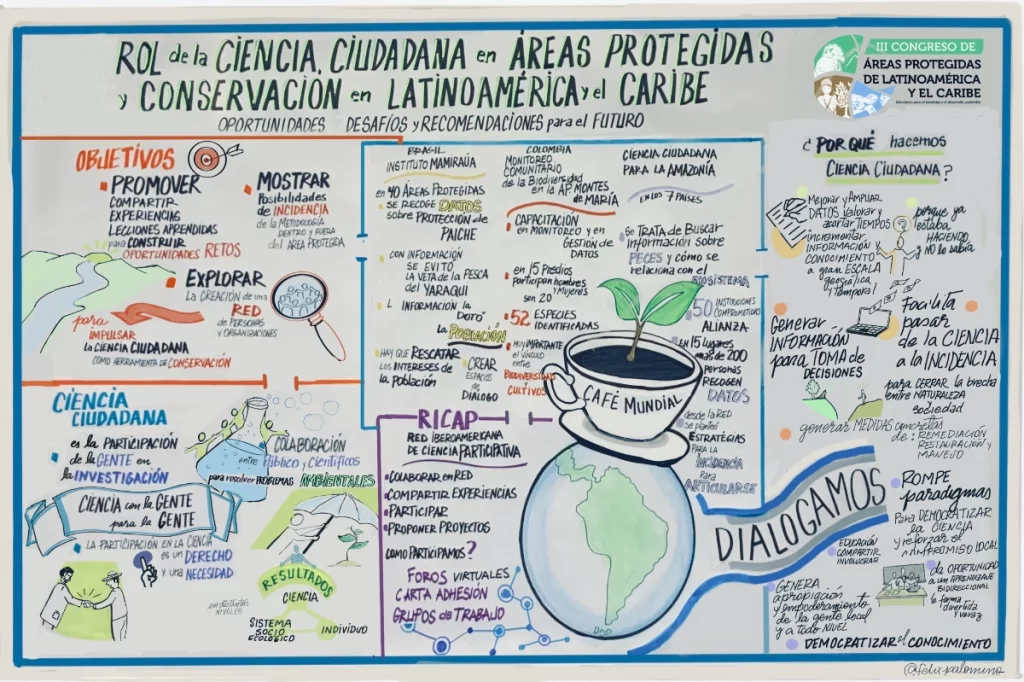 ROL de la CIENCIA CIUDADANA en ÁREAS PROTEGIDAS
y CONSERVACIÓN en LATINOAMÉRICA y el CARIBE
OPORTUNIDADES DESAFÍOS y RECOMENDACIONES para el FUTURO
III CONGRESO DE
ÁREAS PROTEGIDAS
DE LATINOAMÉRICA
Y EL CARIBE
OBJETIVOS
PROMOVER
COMPARTIR
EXPERIENCIAS
LECCIONES APRENDIDAS
para CONSTRUIR
OPORTUNIDADES RETOS
MOSTRAR
POSIBILIDADES
de INCIDENCIA
de la METODOLOGÍA
DENTRO y FUERA
del ÁREA PROTEGIDA
EXPLORAR
LA CREACIÓN de una
RED
de PERSONAS
y ORGANIZACIONES
para
IMPULSAR
LA CIENCIA CIUDADANA
COMO HERRAMIENTA de CONSERVACIÓN
CIENCIA
CIUDADANA
es la PARTICIPACIÓN
de la GENTE en
la INVESTIGACIÓN
COLABORACIÓN
entre Público y Científicos
para resolver PROBLEMAS AMBIENTALES
CIENCIA con la GENTE
para la GENTE
LA PARTICIPACIÓN en la CIENCIA
es un DERECHO
y una NECESIDAD
RESULTADOS
en distintos
NIVELES
CIENCIA
SISTEMA
SOCIO
ECOLÓGICO
INDIVIDUO
BRASIL
INSTITUTO MAMIRAUÁ
en 40 ÁREAS PROTEGIDAS
SE RECOGE DATOS
sobre PROTECCIÓN de
PAICHE
CON INFORMACIÓN
SE EVITÓ
LA VETA de la PESCA
del YARAQUI
INFORMACIÓN
DOTÓ
la POBLACIÓN
HAY QUE RESCATAR
LOS INTERESES de
la POBLACIÓN
CREAR
ESPACIOS
de DIÁLOGO
COLOMBIA
MONITOREO
COMUNITARIO
de la BIODIVERSIDAD
en la AP. MONTES
de MARÍA
CAPACITACIÓN
en MONITOREO y en
GESTIÓN de
DATOS
en 15 PREDIOS
participan hombres
y MUJERES
SON 20
52 ESPECIES
IDENTIFICADAS
MUY IMPORTANTE
el VÍNCULO
entre
BIODIVERSIDAD
CULTIVOS
CIENCIA CIUDADANA
PARA LA AMAZONÍA
en LOS 7 PAÍSES
se TRATA de BUSCAR
INFORMACIÓN SOBRE
PECES y CÓMO se
relaciona con el
ECOSISTEMA
50 INSTITUCIONES
COMPROMETIDAS
ALIANZA
en 15 lugares
más de 200
personas
RECOGEN
DATOS
desde la RED
se planteó
ESTRATEGIAS
PARA la
INCIDENCIA
PARA
ARTICULARSE
CAFÉ MUNDIAL
RICAP
RED IBEROAMERICANA
de CIENCIA PARTICIPATIVA
COLABORAR en RED
COMPARTIR EXPERIENCIAS
PARTICIPAR
PROPONER PROYECTOS
COMO PARTICIPAMOS?
FOROS VIRTUALES
CARTA ADHESIÓN
GRUPOS de TRABAJO
DIALOGAMOS
¿POR QUÉ hacemos
CIENCIA CIUDADANA?
Mejorar y AMPLIAR
DATOS valorar y
acortar TIEMPOS
incrementar
INFORMACIÓN
CONOCIMIENTO
a gran ESCALA
geográfica
y temporal
porque ya
estaba
HACIENDO
y NO lo sabía
Generar
INFORMACIÓN
para TOMA de
DECISIONES
Facilita
pasar
de la CIENCIA
a la INCIDENCIA
para CERRAR la brecha
entre NATURALEZA
y Sociedad
generar MEDIDAS concretas
de: REMEDIACIÓN
RESTAURACIÓN y
MANEJO
ROMPE
paradigmas
Para DEMOCRATIZAR
la CIENCIA
y reforzar el
COMPROMISO LOCAL
EDUCACIÓN
COMPARTIR
INVOLUCRAR
da OPORTUNIDAD
a un APRENDIZAJE
BIDIRECCIONAL
de forma
divertida
y veraz
GENERA
apropiación y
empoderamiento
de la gente local
y a todo NIVEL
DEMOCRATIZAR el CONOCIMIENTO
@felixpalomino